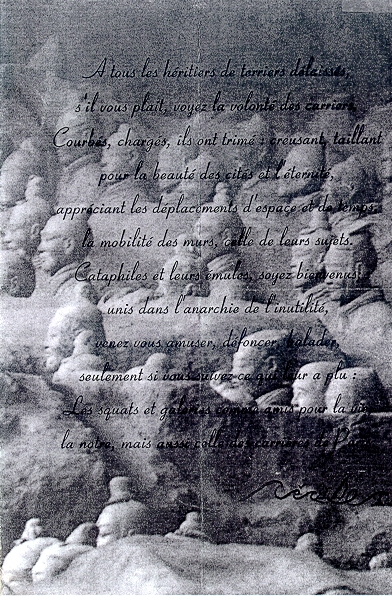 A tous les héritiers de terriers délaissés,
s'il vous plaît, voyez la volonté des carriers,
Courbés, chargés, ils ont trimé : creusant, taillant
pour la beauté des cités et l'éternité,
appréciant les déplacements d'espace et de temps,
la mobilité des murs, celle de leurs sujets.
Cataphiles et leurs émules, soyez bienvenus
unis dans l'anarchie de l'inutilité,
venez vous amuser, défoncer, balader,
seulement si vous suivez ce qui leur a plu :
Les squats et galeries comme amis pour la vie
la notre, mais aussi celle des carrières de